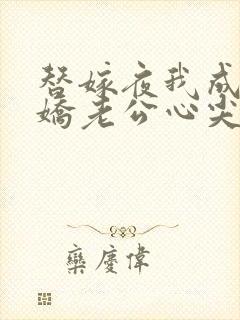 替嫁夜我成
嬌老公心尖
欒慶偉